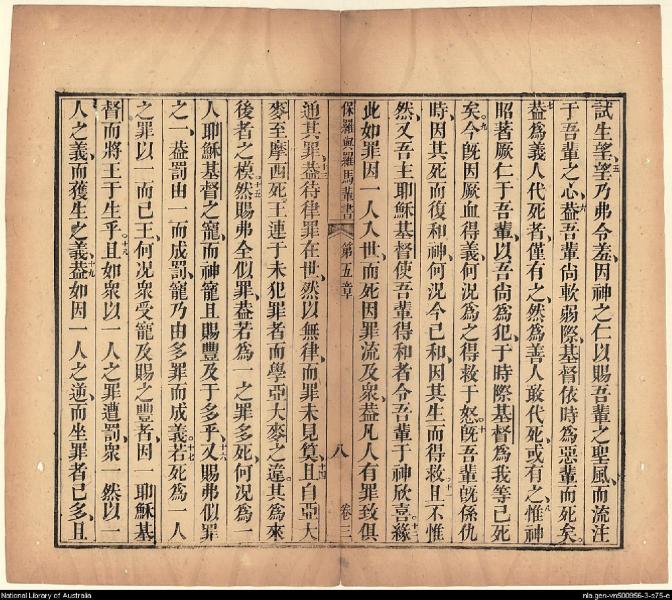 試生望望乃弗令羞因神之仁以賜吾輩之聖風而流注
于吾輩之心葢吾輩尙軟弱際基督依時爲惡輩而死矣
葢爲義人代死者僅有之然爲善人敢代死或有之惟神
昭著厥仁于吾輩以吾尙爲犯于時際基督爲我等已死
矣今旣因厥血得義何況爲之得救于怒旣吾輩旣係仇
時因其死而復和神何況今已和因其生而得救且不惟
然又吾主耶穌基督使吾輩得和者令吾輩于神欣喜緣
此如罪因一人入世而死因罪流及衆葢凡人有罪致俱
保羅與羅馬輩書 第五章 八 卷三
通其罪葢待律罪在世然以無律而罪未見筭且自亞大
麥至摩西死王連于未犯罪者而學亞大麥之違其爲來
後者之模然賜弗全似罪葢若爲一之罪多死何況爲一
人耶穌基督之寵而神寵且賜豐及于多乎又賜弗似罪
之一葢罰由一而成罰寵乃由多罪而成義若死爲一人
之罪以一而已王何況衆受寵及賜之豐者因一耶穌基
督而將王于生乎且如衆以一人之罪遭罰衆一然以一
人之義而獲生之義葢如因一人之逆而坐罪者已多且
National Library of Australia
nla.gen-vn500956-3-s75-e